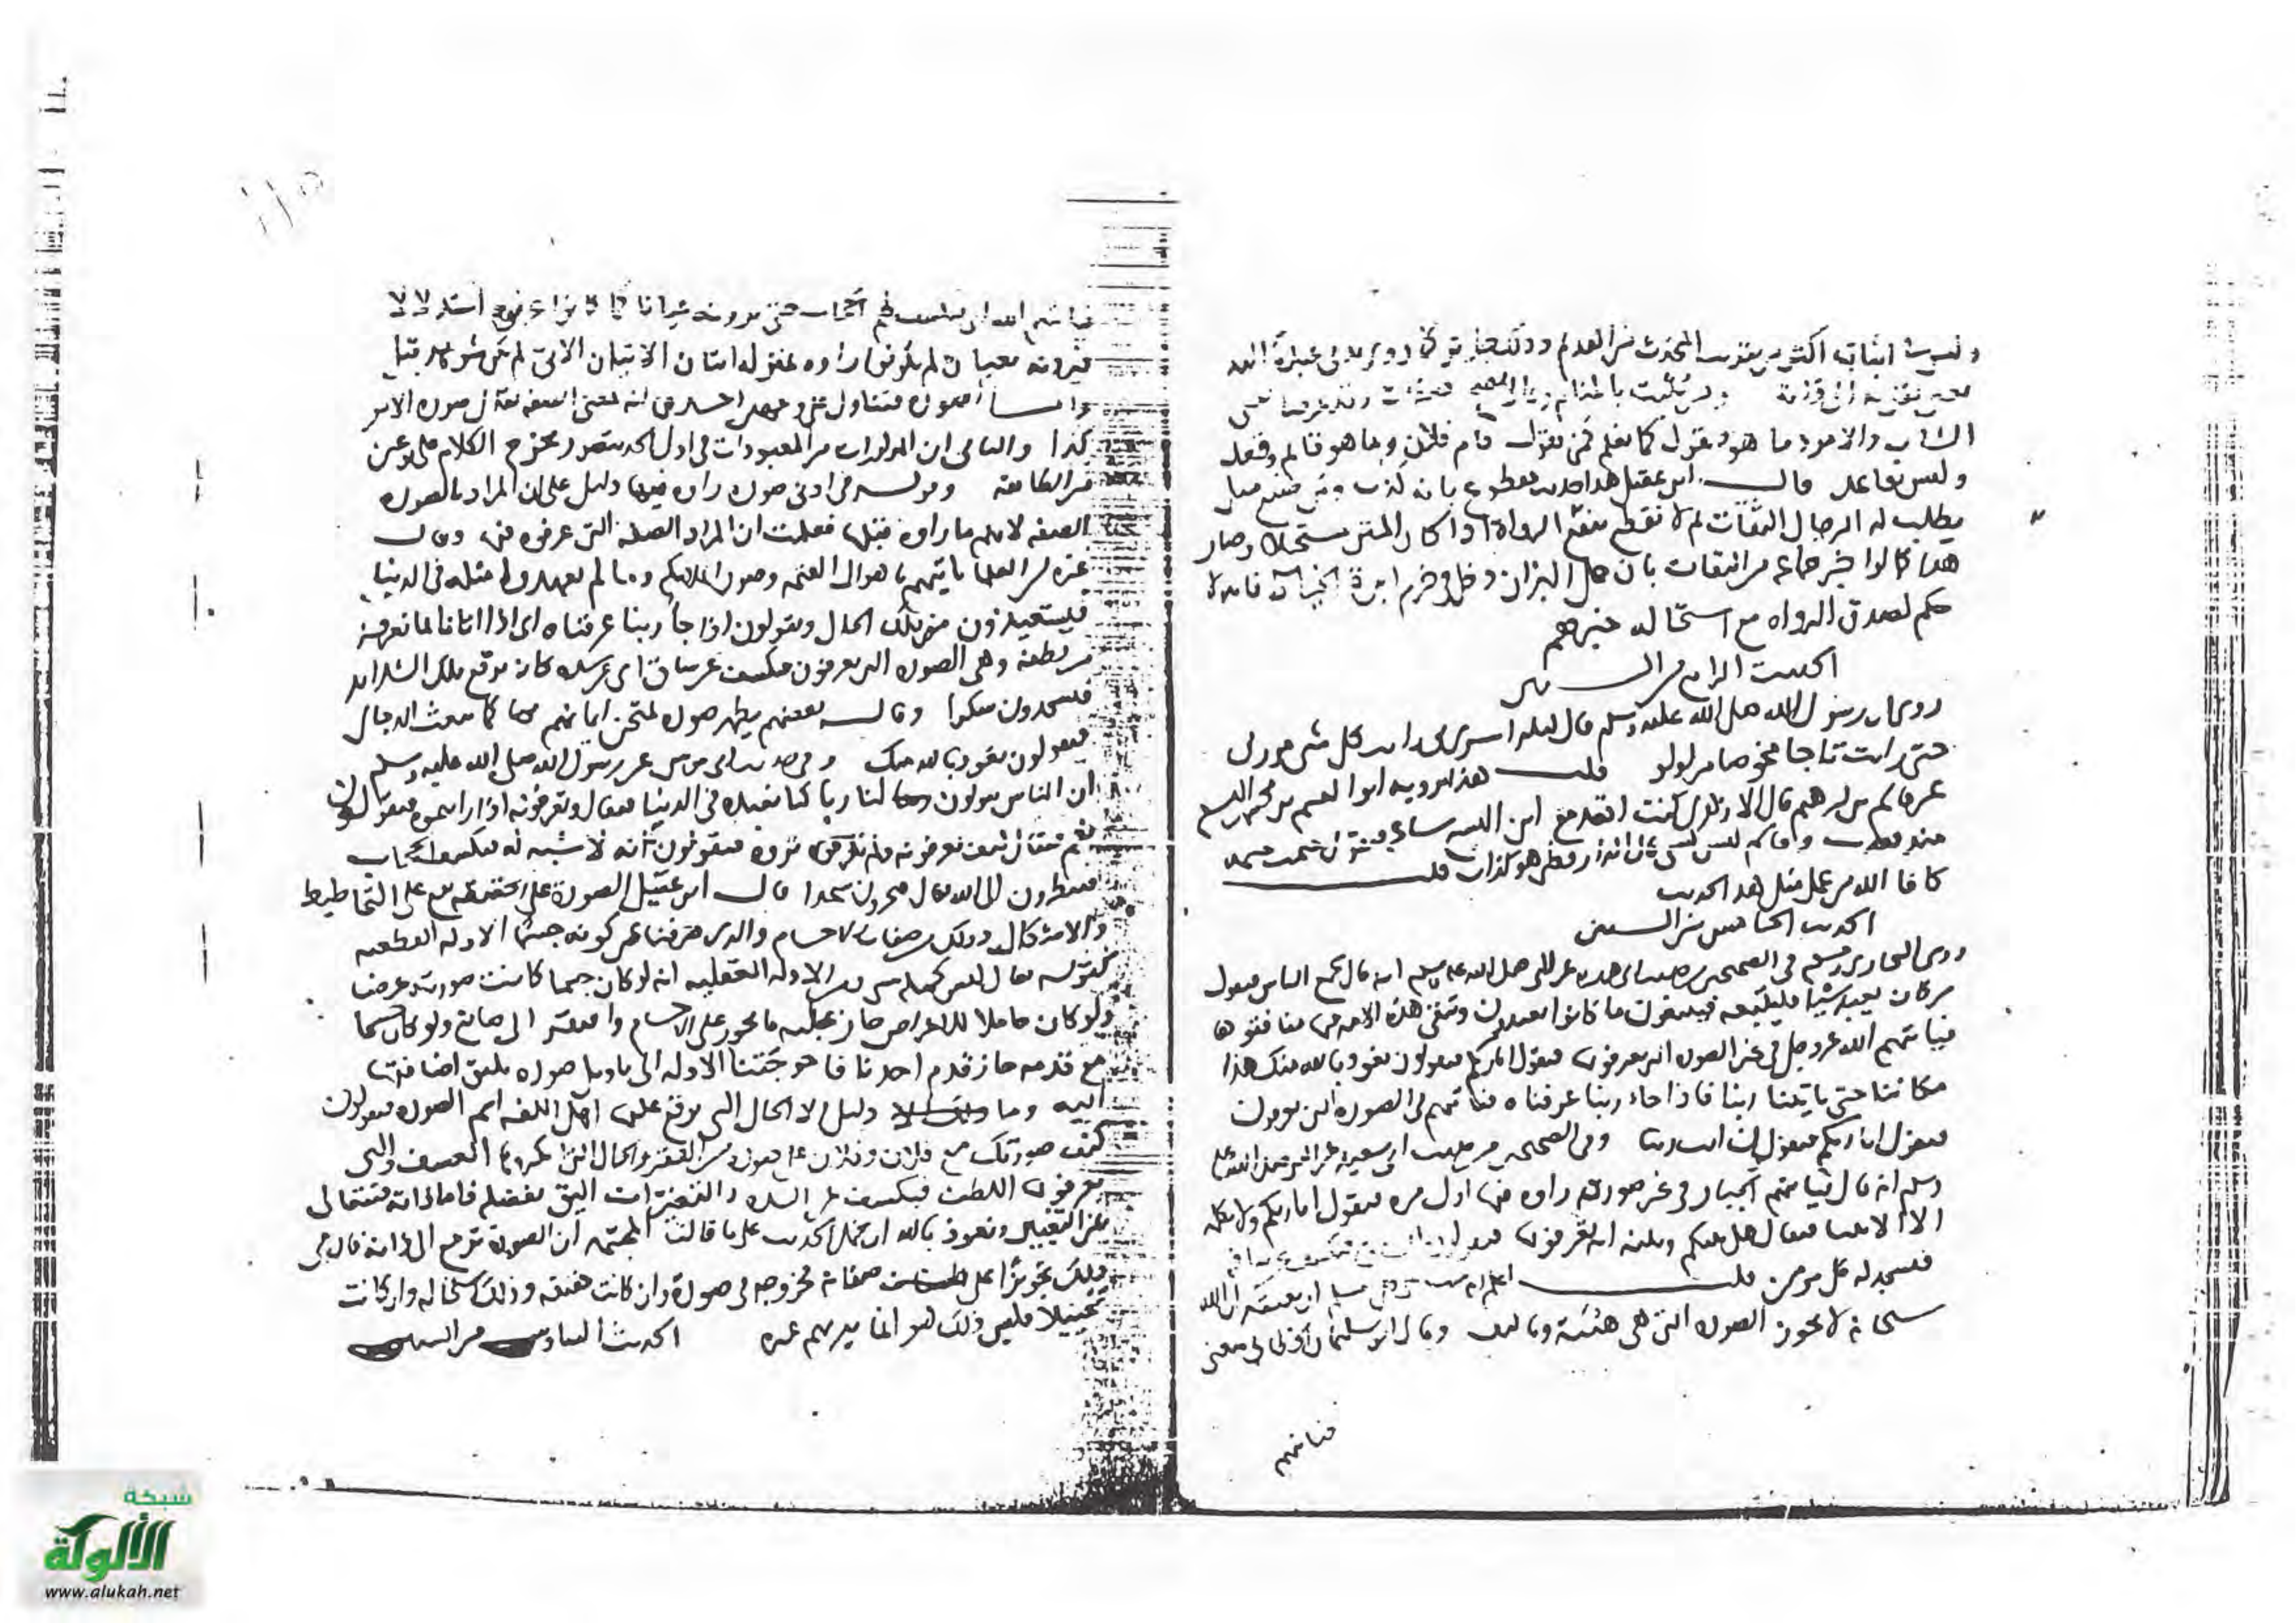 وليس اثباته اكثر من تقريب المحدث من القدم وذلك
الشاب والامرد ما هو ويقول كما نعلم فمن يقول قام فلان وما هو قائم وقعد
وليس بقاعد قال ابن عقيل هذا حديث مقطوع بانه كذب
يطلب له الرجال الثقات لم لا تقطع بثقة الرواة اذا كان المتن مستحيلا وصار
هذا كما لو اخبر جماعه من الثقات بان جمل البزاز دخل في خرم ابرة الخياط فانه لا
حكم لصدق الرواه مع استحاله خبرهم
الحديث الرابع من الستين
روي ان رسول الله صلى الله عليه وسلم قال ليله اسري بي رايت كل شي من ربي
حتى رايت تاجا مخوصا من لولو قلت هذا يرويه ابوا القسم بن محمد بن اليسع
عن قاسم بن ابرهيم قال الازهري كنت اقعد مع ابن اليسع ساعه فيقول ختمت ختمه
منذ قعدت وقاسم ليس بشي قال الدارقطني هو كذاب قلت
كافا الله من عمل مثل هذا الحديث
الحديث الخامس من الستين
روى البخاري ومسلم في الصحيحين من حديث ابي هريره عن النبي صلى الله عليه وسلم انه قال يجمع الناس فيقول
من كان يعبد شيا فليتبعه فيتبعون ما كانوا يعبدون وتبقى هذه الامه من منافقوها
فياتيهم الله عز وجل في غير الصوره التي يعرفون فيقول انا ربكم فيقولون نعوذ بالله منك هذا
مكاننا حتى ياتينا ربنا فاذا جاء ربنا عرفناه فياتيهم في الصوره التي يعرفون
فيقول انا ربكم فيقولون انت ربنا وفي الصحيحين من حديث ابي سعيد عن النبي صلى الله عليه
وسلم انه قال فياتيهم الجبار في غير صورته راوه فيها اول مره فيقول انا ربكم ولا يكلمه
الا الانبيا فيقال هل بينكم وبينه ايه تعرفونه فيقولون الساق فيكشف عن ساقه
فيسجد له كل مومن قلت اعلم انه يجب على كل مسلم ان يعتقد ان الله
سبحانه لا يجوز الصوره التي هي هئية وتاليف وقال ابو سليمان الخطابي معنى
فياتيهم
فياتيهم الله اي يكشف لهم الحجاب حتى يرونه عيانا كما كانوا عرفوه استدلالا
فيرونه بعد ان لم يكونوا راوه بمنزله اتيان الاتي لم يكن شوهد قبل
واما الصوره فتتاول على وجهين احدهما انه بمعنى الصفه يقال صوره الامر
كذا والثاني ان المذكورات من المعبودات في اول الحديث صور يخرج الكلام على نوع من
المطابقه وقوله في ادنى صوره راوه فيها دليل على ان المراد بالصوره
الصفه لانهم ما راوه قبلها فعلمت ان المراد الصفه التي عرفوه فيها وقال
غيره من العلما ياتيهم باهوال القيمه وصور الملايكه وما لم يعهدوا مثله في الدنيا
فيستعيذون من تلك الحال ويقولون اذا جا ربنا عرفناه اي اذا اتانا بما نعرفه
من لطفه وهي الصوره التي يعرفون فيكشف عن ساق اي عن شده كانه يرفع تلك الشدايد
فيسجدون شكرا وقال بعضهم يظهر صوره لمتحن ايمانهم بها كما يبعث الدجال
فيقولون نعوذ بالله منك وفي حديث ابي موسى عن رسول الله صلى الله عليه وسلم
ان الناس يقولون ان لنا ربا كنا نعبده في الدنيا فيقال وتعرفونه اذا رايتموه فيقولون
نعم فيقال كيف تعرفونه ولم تروه فيقولون انه لا شبيه له فيكشف الحجاب
فينظرون الى الله تعالى فيخرون سجدا قال ابن عقيل الصورة على الحقيقه تقع على التخاطيط
والاشكال وذلك من صفات الاجسام والذي صرفنا عن كونه جسما الادله القطعيه
كقوله تعالى ليس كمثله شي ومن الادله العقليه انه لو كان جسما كانت صورته عرضا
ولو كان حاملا للاعراض جاز عليه ما يجوز على الاجسام وافتقر الى صانع ولو كان جسما
مع قدمه جاز قدم احدنا فاحوجتنا الادله الى تاويل صوره يليق اضافتها
اليه وما ذلك الا الحال التي يوقع عليها اهل اللغه اسم الصوره فيقولون
كيف صورتك مع فلان وفلان على صوره من الفقر والحال التي انكروها العسف والتي
يعرفون اللطف فيكشف عن الشده والتغيرات اليق بفعله فاما ذاته فتتعالى
عن التغيير ونعوذ بالله ان يحمل الحديث على ما قالت المجسمه ان الصورة ترجع الى ذاته فان في
ذلك تجويزا على صفاته فخروجه في صورة ان كانت حقيقه وذلك استحاله وان كانت
تخييلا فليس ذلك هو انما يريهم غيره الحديث السادس من الستين
شبكة
الألوكة
www.alukah.net